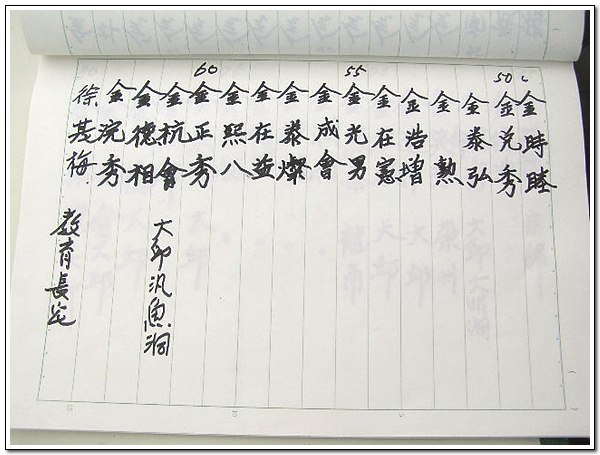 金時睦
50
金兌秀
金泰弘
金勲
金浩增
金在憲
55
金光男
金成會
金泰燦
金在益
金熙八
60
金正秀
金杭會 大邱汎魚洞
金德相
金浣秀
徐 梅 教育長宅